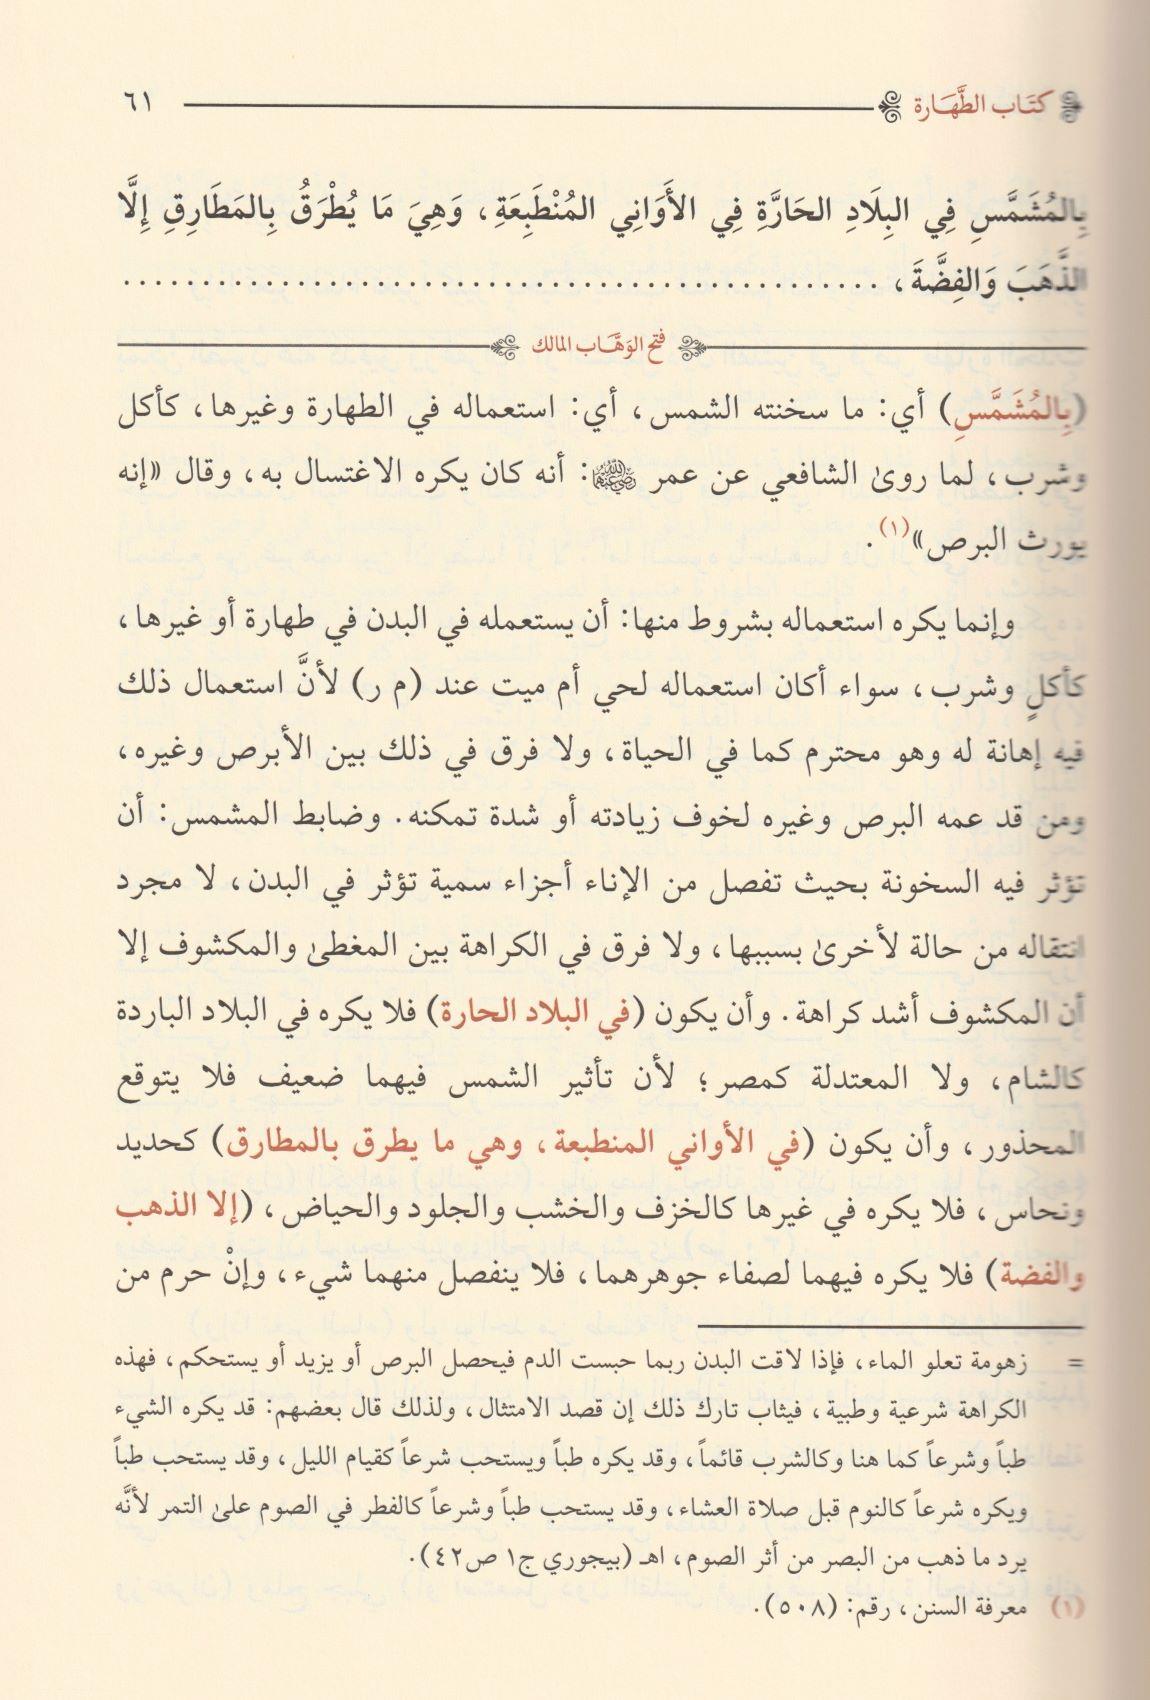 كتَاب الطَّهَارة ٦١
بِالمُشَمَّسِ فِي البِلَادِ الحَارَّةِ فِي الأَوَانِي المُنْطَبِعَةِ، وَهِيَ مَا يُطْرَقُ بِالمَطَارِقِ إِلَّا
الذَّهَبَ وَالفِضَّةَ، ................................................
فتح الوَهَّاب المالك
(بِالمُشَمَّسِ) أي: ما سخنته الشمس، أي: استعماله في الطهارة وغيرها، كأكل
وشرب، لما روىٰ الشافعي عن عمر رضي الله عنه: أنه كان يكره الاغتسال به، وقال «إنه
يورث البرص»(١).
وإنما يكره استعماله بشروط منها: أن يستعمله في البدن في طهارة أو غيرها،
كأكلٍ وشرب، سواء أكان استعماله لحي أم ميت عند (م ر) لأنَّ استعمال ذلك
فيه إهانة له وهو محترم كما في الحياة، ولا فرق في ذلك بين الأبرص وغيره،
ومن قد عمه البرص وغيره لخوف زيادته أو شدة تمكنه. وضابط المشمس: أن
تؤثر فيه السخونة بحيث تفصل من الإناء أجزاء سمية تؤثر في البدن، لا مجرد
انتقاله من حالة لأخرىٰ بسببها، ولا فرق في الكراهة بين المغطىٰ والمكشوف إلا
أن المكشوف أشد كراهة. وأن يكون (في البلاد الحارة) فلا يكره في البلاد الباردة
كالشام، ولا المعتدلة كمصر؛ لأن تأثير الشمس فيهما ضعيف فلا يتوقع
المحذور، وأن يكون (في الأواني المنطبعة، وهي ما يطرق بالمطارق) كحديد
ونحاس، فلا يكره في غيرها كالخزف والخشب والجلود والحياض، (إلا الذهب
والفضة) فلا يكره فيهما لصفاء جوهرهما، فلا ينفصل منهما شيء، وإنْ حرم من
= زهومة تعلو الماء، فإذا لاقت البدن ربما حبست الدم فيحصل البرص أو يزيد أو يستحكم، فهذه
الكراهة شرعية وطبية، فيثاب تارك ذلك إن قصد الامتثال، ولذلك قال بعضهم: قد يكره الشيء
طباً وشرعاً كما هنا وكالشرب قائماً، وقد يكره طباً ويستحب شرعاً كقيام الليل، وقد يستحب طباً
ويكره شرعاً كالنوم قبل صلاة العشاء، وقد يستحب طباً وشرعاً كالفطر في الصوم علىٰ التمر لأنَّه
يرد ما ذهب من البصر من أثر الصوم، اهـ (بيجوري ج١ ص٤٢).
(١) معرفة السنن، رقم: (٥٠٨).